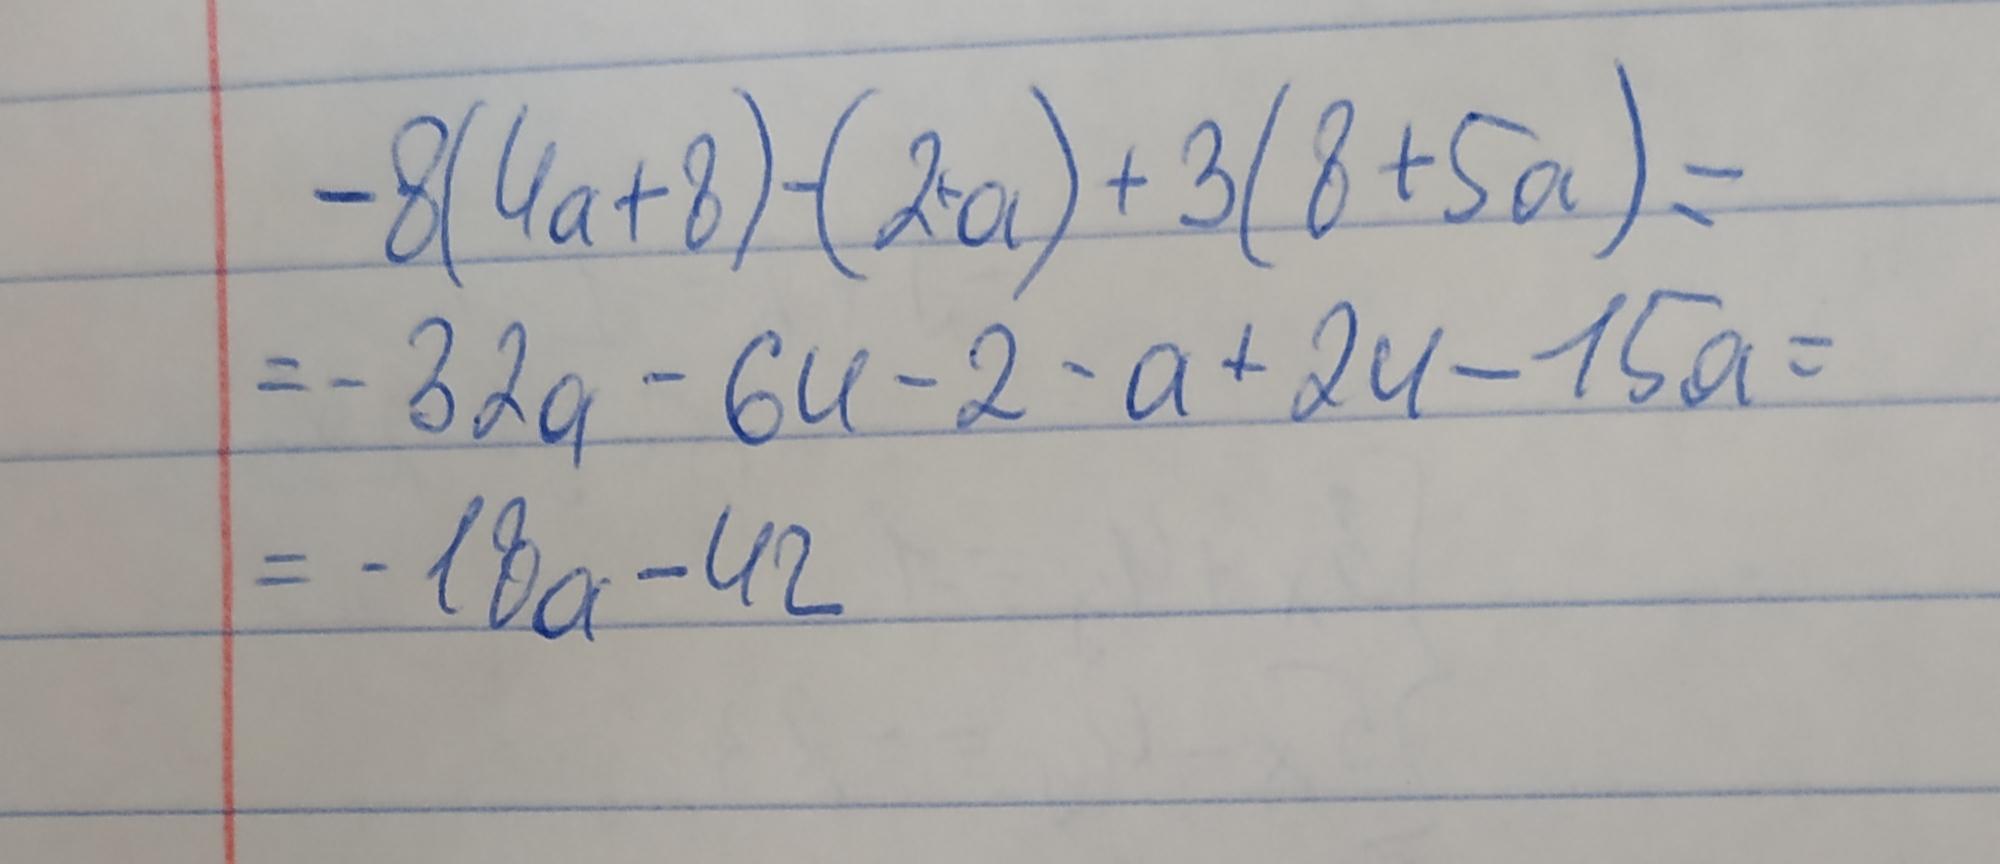 -8(4a+8)-(2+a)+3(8+5a)=
=-32a-64-2-a+24-15a=
=-18a-42